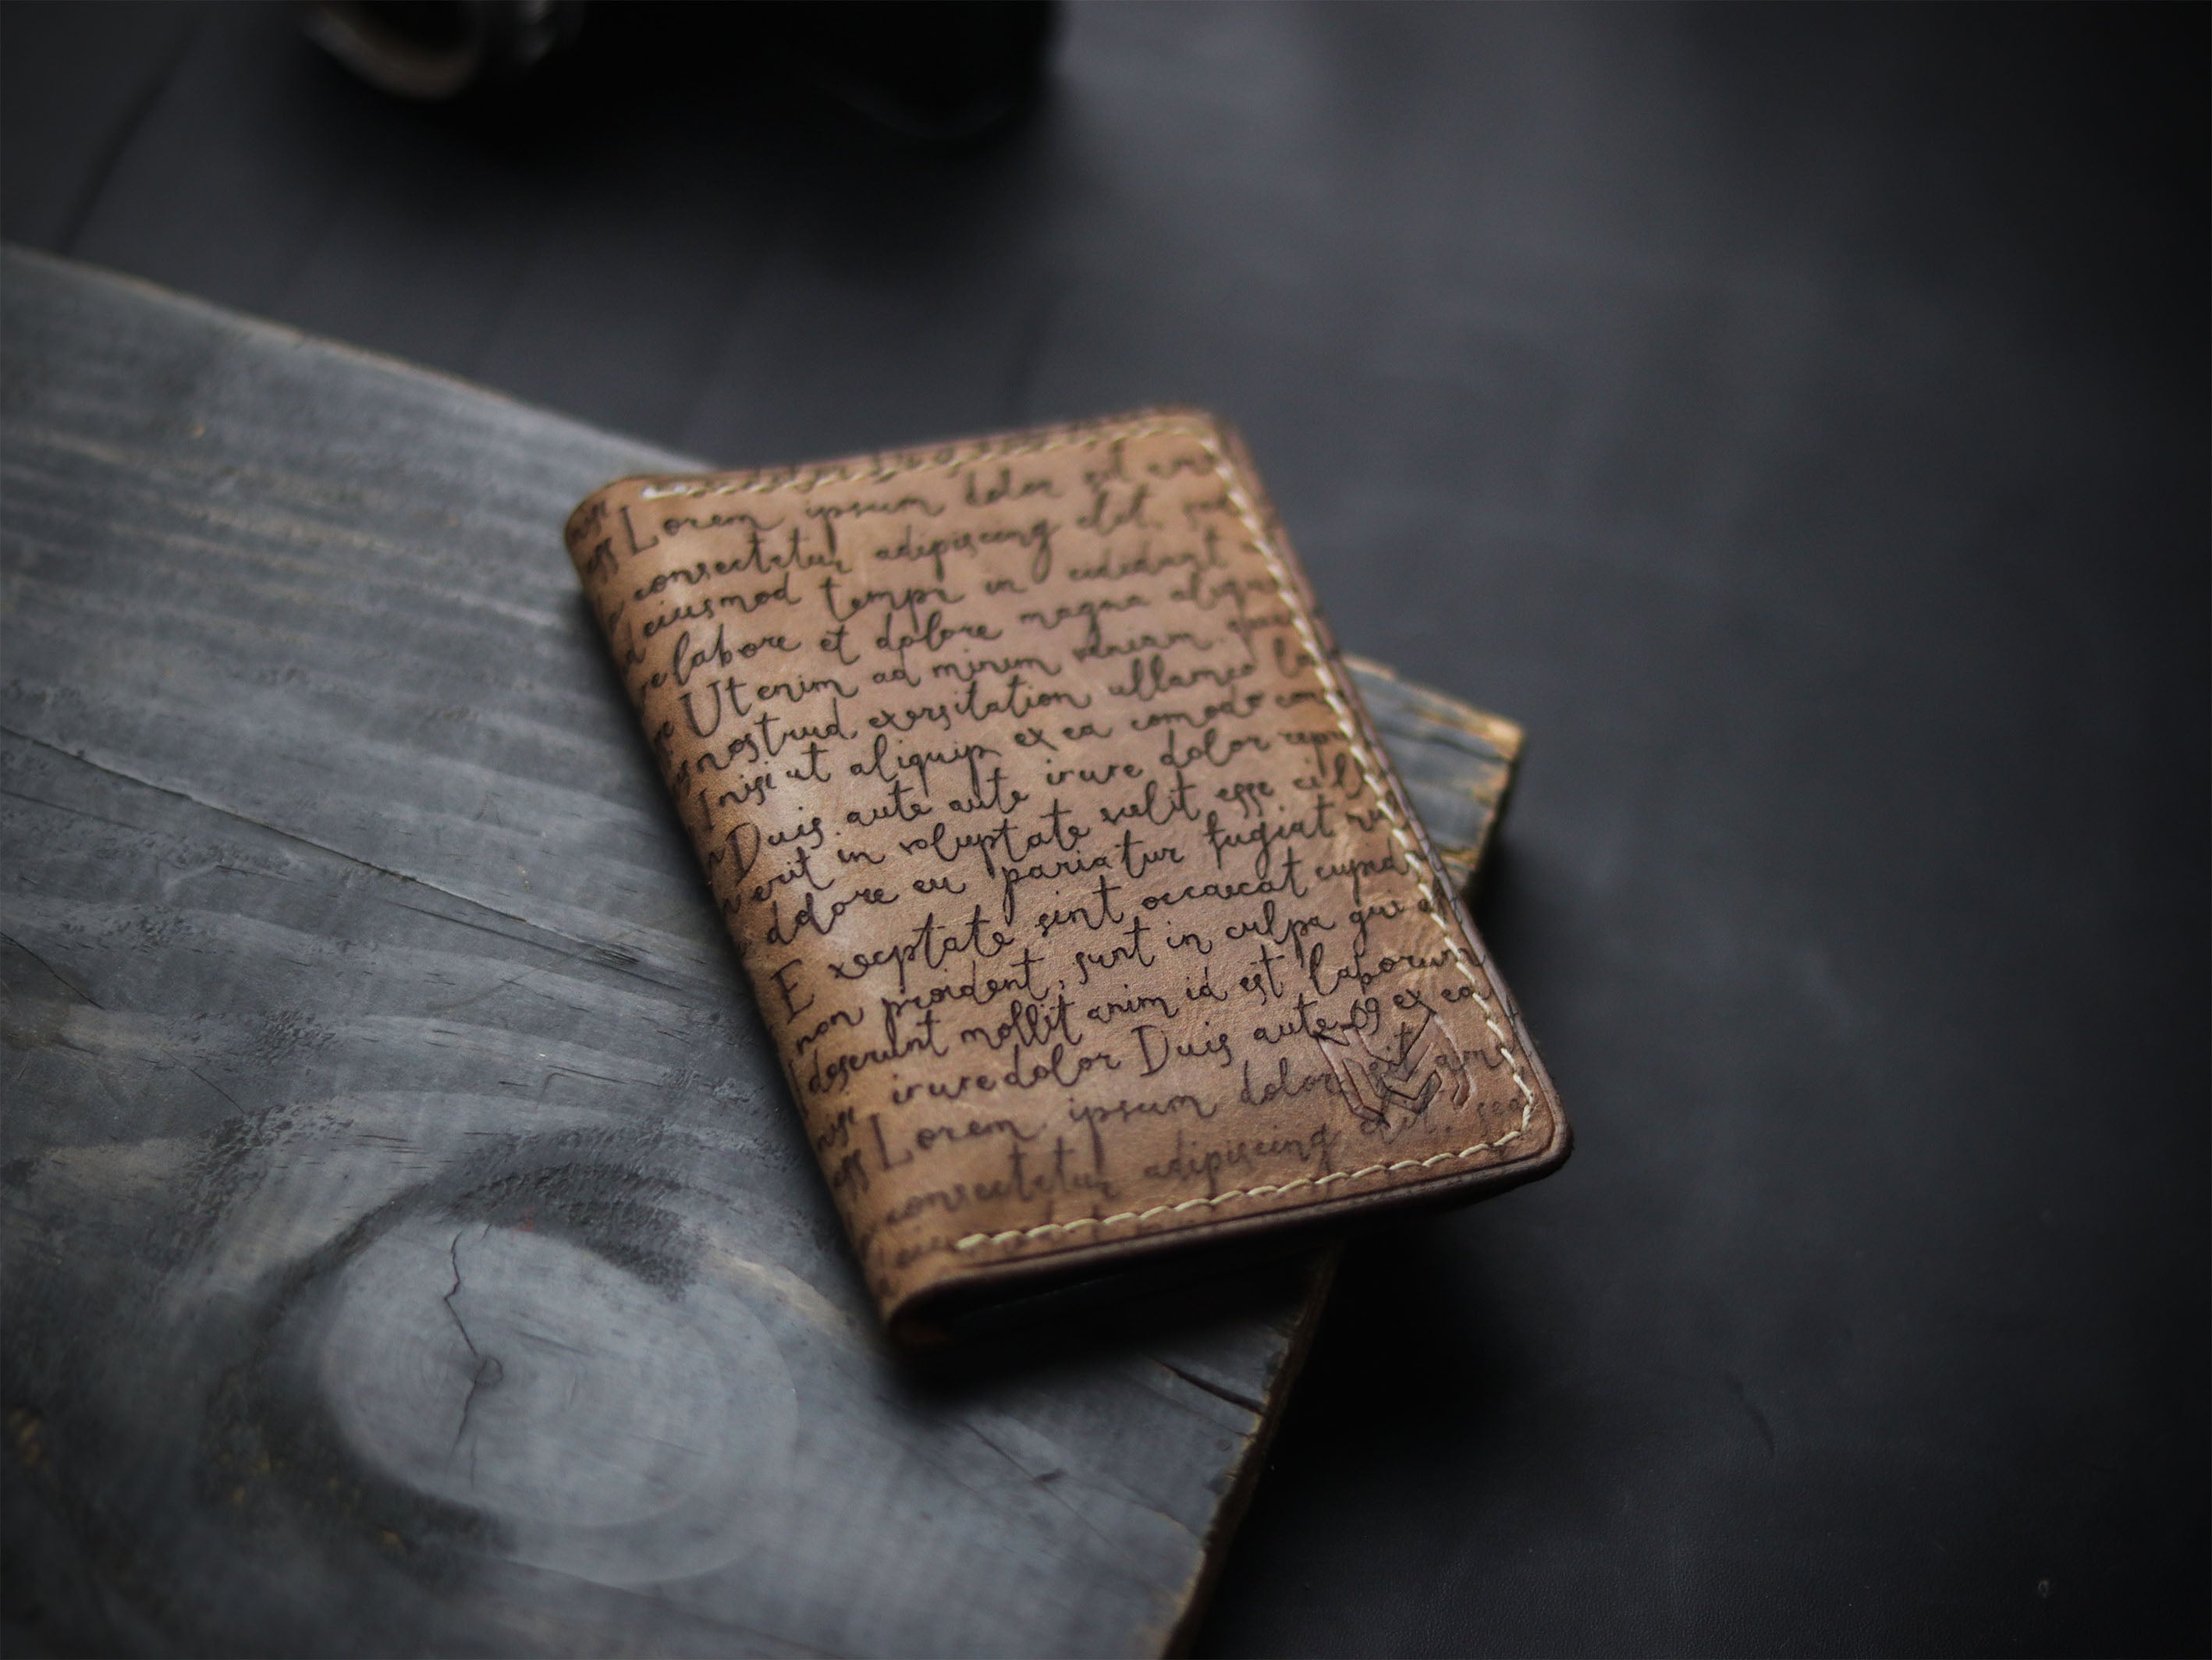 Lorem ipsum dolor sit
consectetur adipiscing elit, sed
eiusmod tempr in cididunt
re labore et dolore magna aliqua
Ut enim ad minum veniam, quis
nostrud, exersitation ullamco la
nisi ut aliquip ex ea comodo con
Duis aute aute irure dolor repr
erit in voluptate velit esse cill
dolore eu pariatur fugiat nu
Exceptate sint occaecat cupid
non proident, sunt in culpa qui
deserunt mollit anim id est laborum
nisi irure dolor Duis aute ex ea
Lorem ipsum dolor sit ame
consectetur adipiscing elit, sed